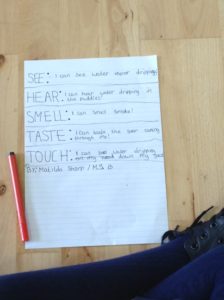 SEE: I can see water dripping!
HEAR: I can hear water dripping in
the puddles!
SMELL: I can smell smoke!
TASTE: I can taste the
through me!
TOUCH: I can water dripping
down my face
By: Matilda Sharp / M.S